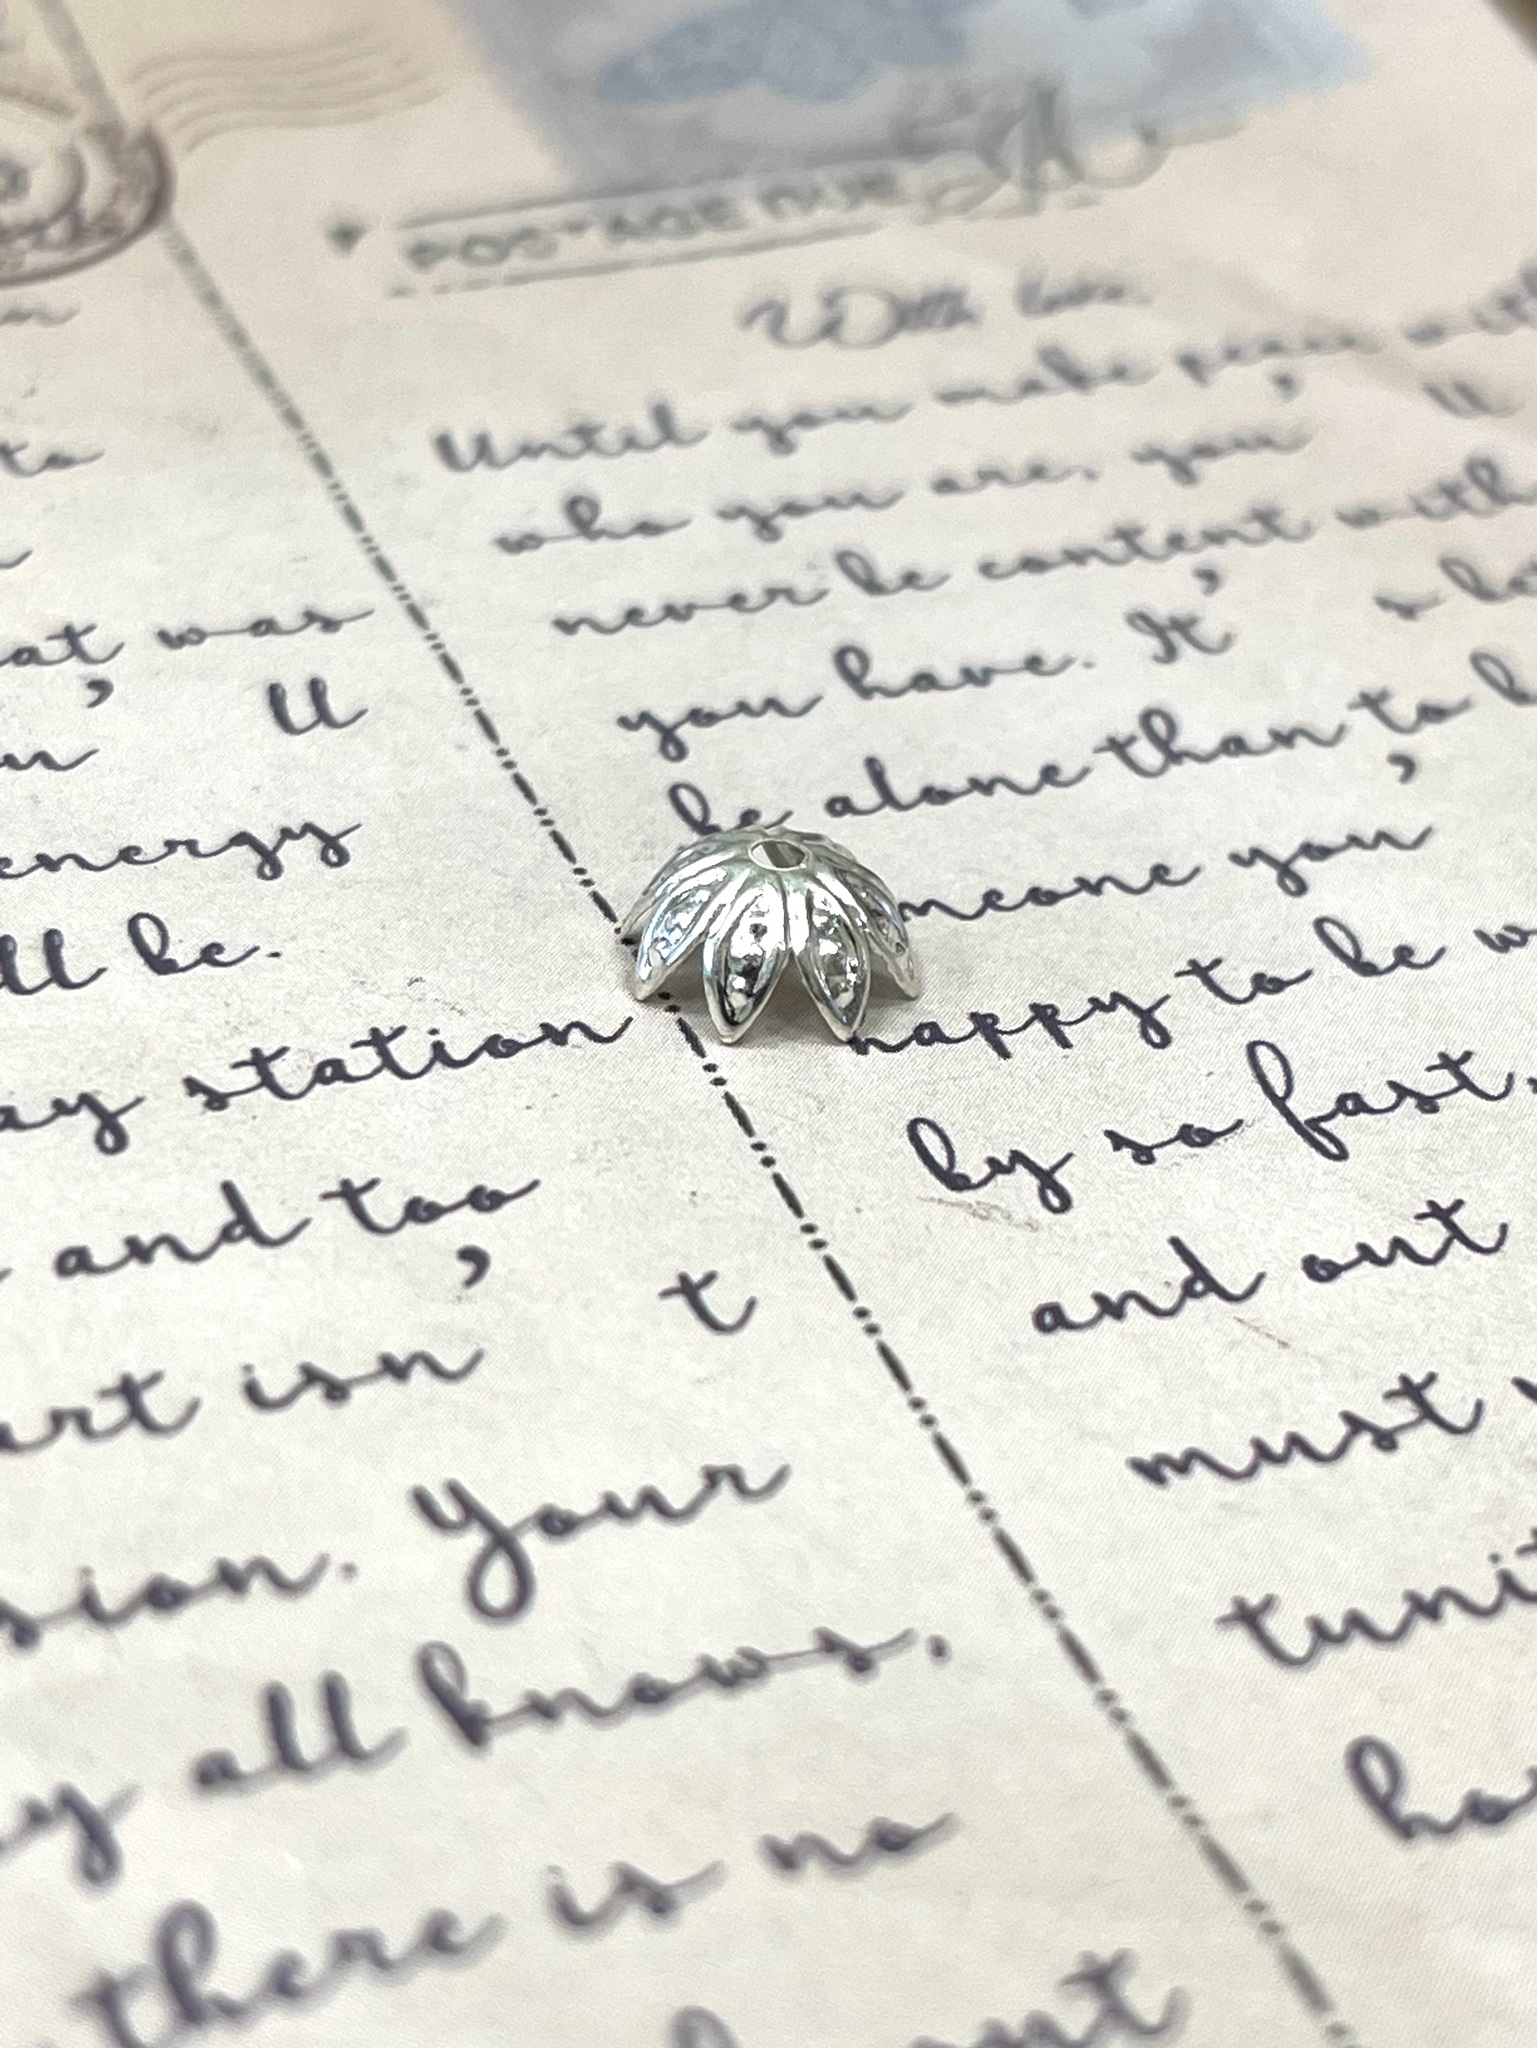 POSTAGE DUE
With love
Until you make peace with
who you are, you ' ll
never be content with
you have. It ' s be
be alone than to b
meone you '
happy to be w
by so fast,
and out
must
tunit
ho
to
at was
' ll
energy
ll be.
ay station
and too
art isn ' t
sion. Your
y all knows,
there is no